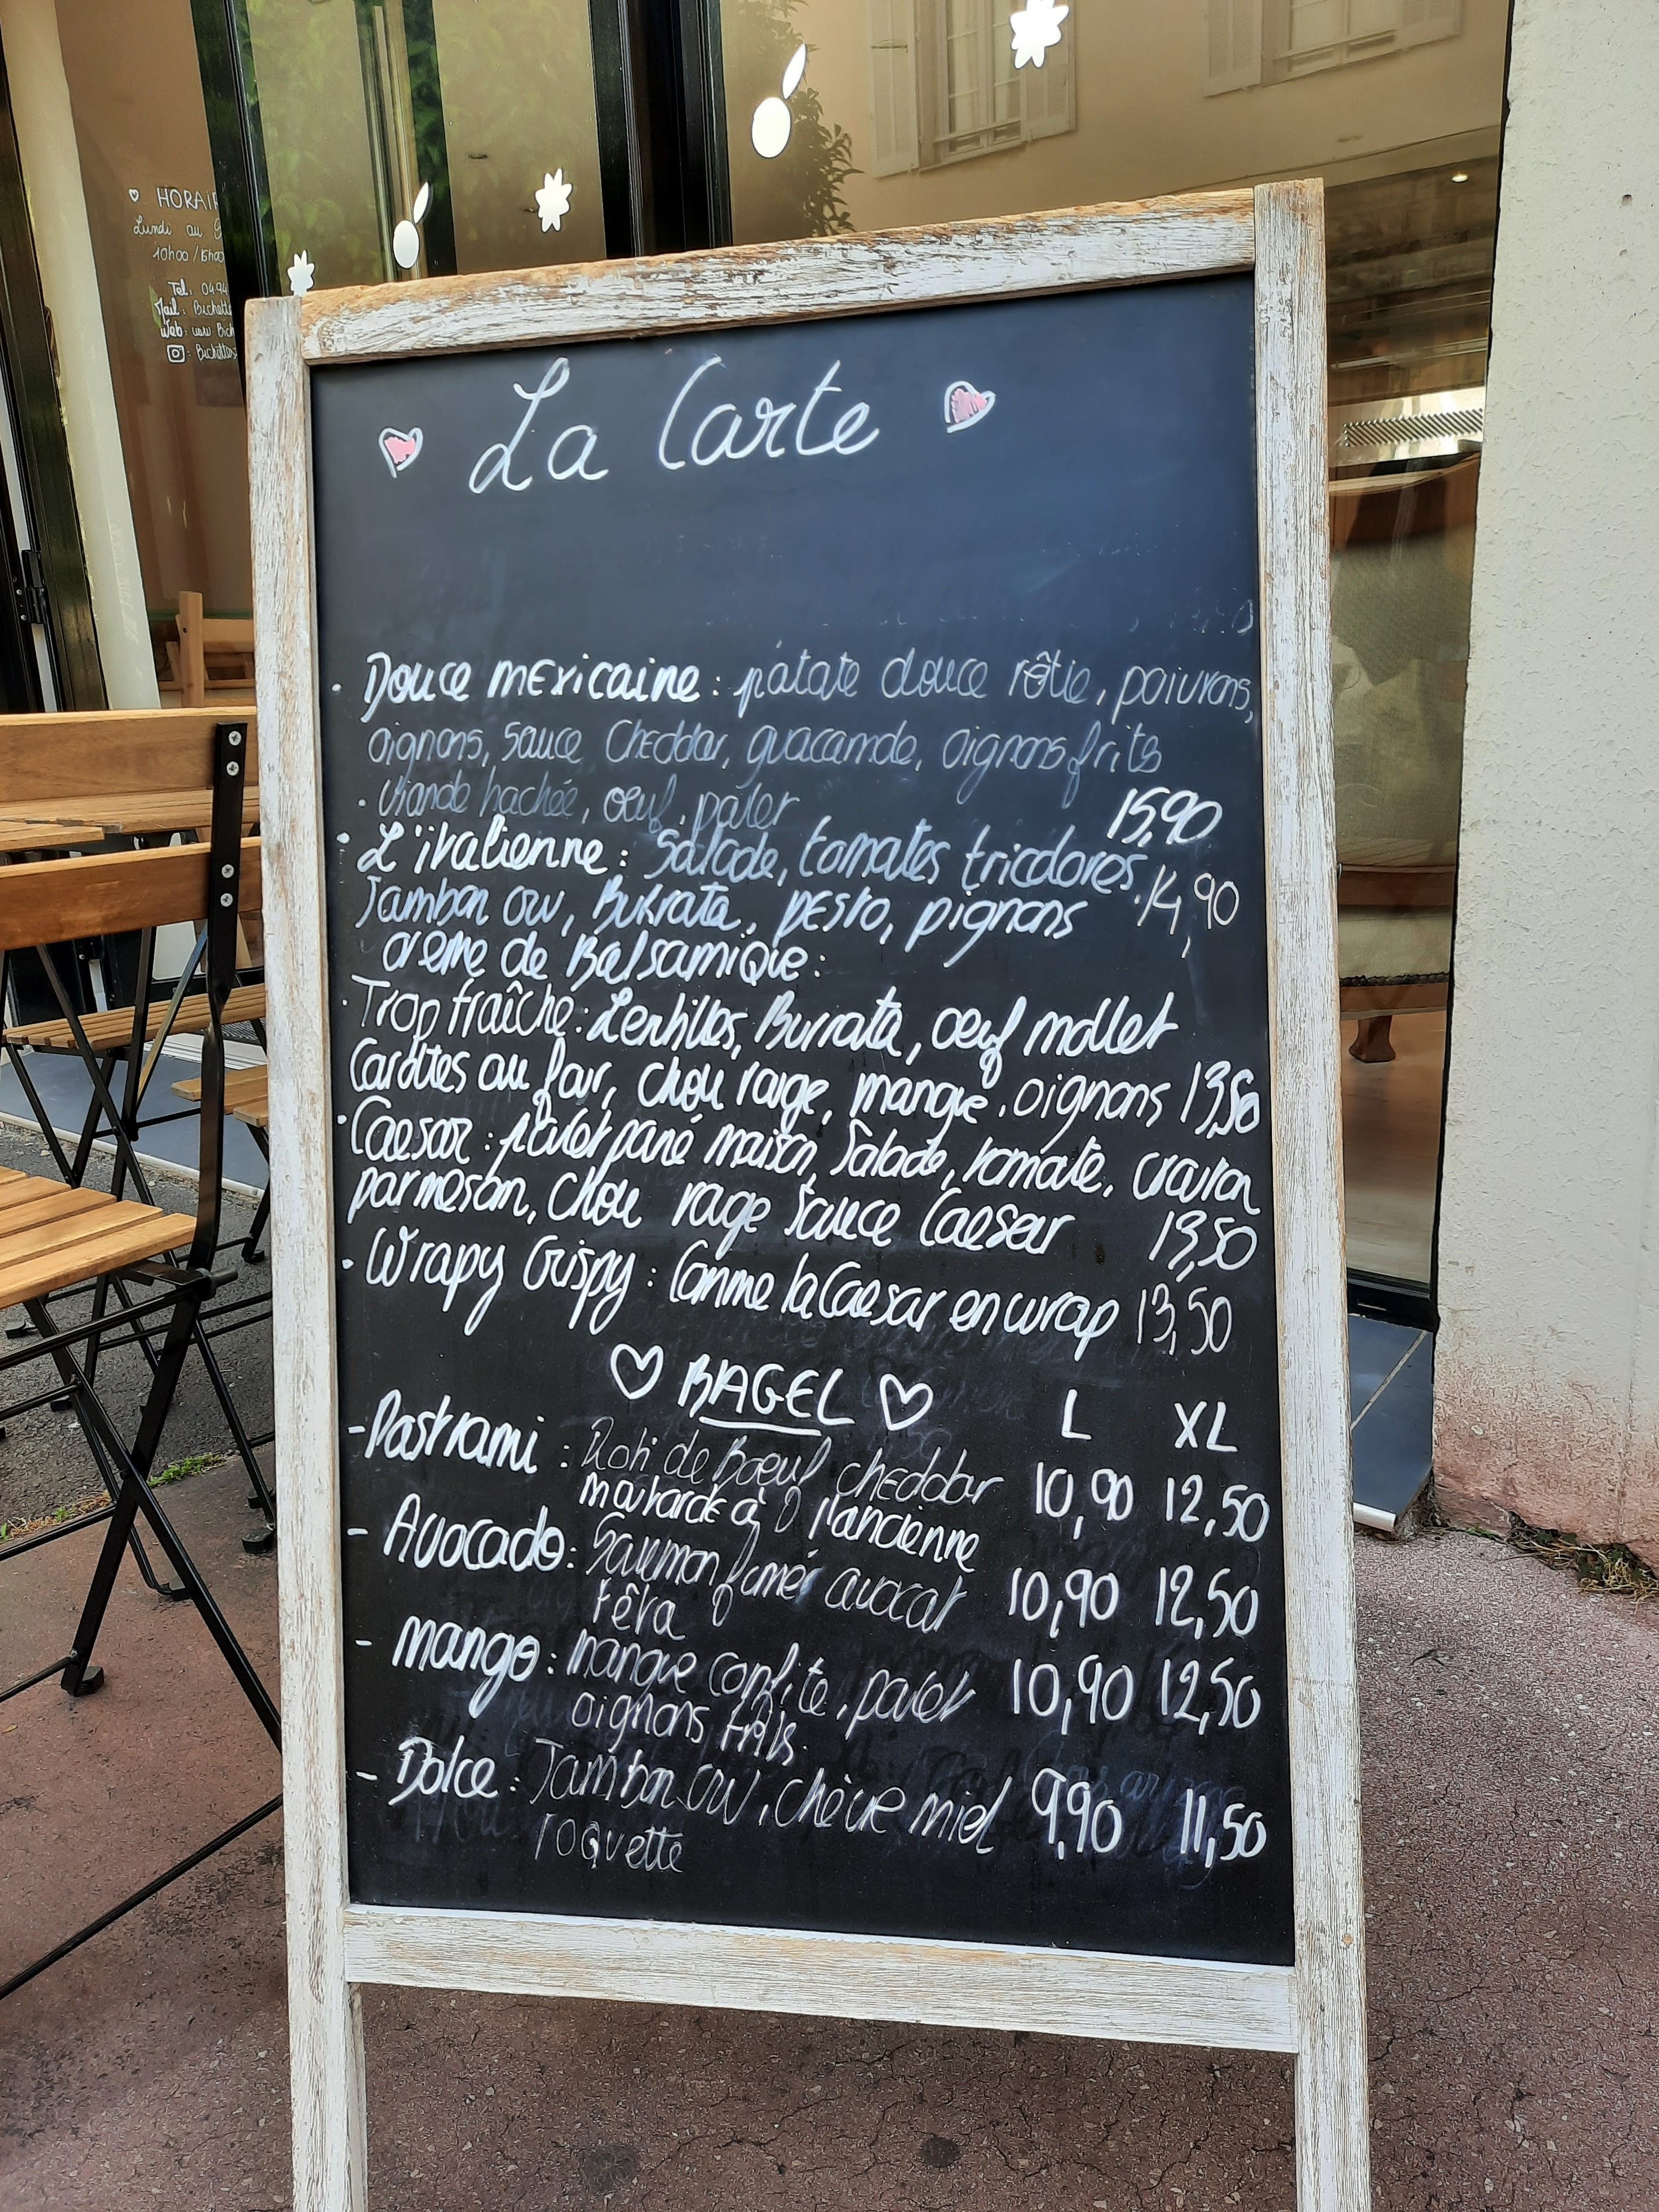 HORAIR
Lundi au
10h00 / 15h00
Tel: 04.94
Mail: Bichette
Web: www Bich
: Bichettes
La Carte
. Douce mexicaine : patate douce rôtie, poivrons,
oignons, sauce Cheddar, guacamole, oignons frits
. viande hachée, oeuf, poulet 15,90
. L'italienne : Salade, tomates tricolores
Jambon cru, Burrata, pesto, pignons 14,90
crème de Balsamique :
. Trop fraîche : Lentilles, Burrata, oeuf mollet
Carottes au four, chou rouge, mangue, oignons 13,50
. Caesar : poulet pané maison, Salade, tomate, crouton
parmesan, Chou rouge Sauce Caesar 13,50
. Wrapy Crispy : Comme la Caesar en wrap 13,50
BAGEL L XL
- Pastrami : Roti de Boeuf cheddar 10,90 12,50
moutarde à l'ancienne
- Avocado : Saumon fumé avocat 10,90 12,50
fêta
- Mango : Mangue confite, poulet 10,90 12,50
oignons frits.
- Dolce : Jambon cru, chèvre miel 9,90 11,50
roquette